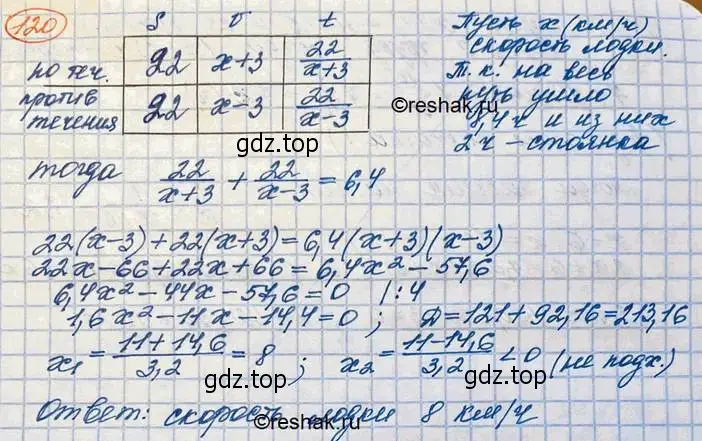 120
S v t
по теч. 22 x+3 22/(x+3)
против течения 22 x-3 22/(x-3)
Пусть x (км/ч)
скорость лодки.
Т.к. на весь
путь ушло
8,4ч и из них
2ч - стоянка
©reshak.ru
gdz.top
тогда 22/(x+3) + 22/(x-3) = 6,4
22(x-3)+22(x+3)=6,4(x+3)(x-3)
22x-66+22x+66=6,4x²-57,6
6,4x²-44x-57,6=0 |:4
1,6x²-11x-14,4=0 ; Д=121+92,16=213,16
x₁=(11+14,6)/3,2=8 ; x₂=(11-14,6)/3,2<0 (не подх.)
gdz.top
©reshak.ru
gdz.top
Ответ: скорость лодки 8 км/ч